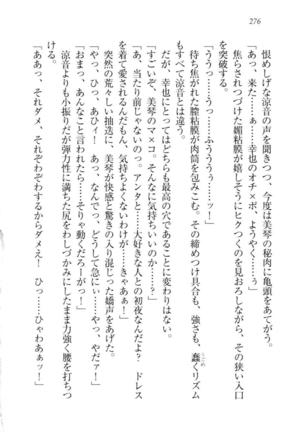 276
恨めしげな涼音の声を聞きつつ、今度は美琴の秘肉に亀頭をあてがう。
「あっ、来た……っ……幸也のオチ×ポ、ようやく……っ」
焦らされつづけた媚粘膜が嬉しそうにヒクつくのを見おろしながら、その狭い入口
を突破する。
「ううっ……うっ……ふううううぅ……ッ！」
待ち焦がれた膣粘膜が肉筒を包みこむ。その締めつけ具合も、強さも、蠢くリズム
しゅん
もすべて涼音とは違う。
だが、幸也にとってはどちらも最高の穴であることに変わりはない。
「すごいぞ、美琴のマ×コ。そんなに気持ちいいのか？」
「あ、当たり前じゃないのっ。アンタと……大好きな人との初夜なんだよ？　ドレス
を着て愛されてるんだもん、気持ちよくないわけが……きゃあぁっ！」
突然の荒々しい抽送に、美琴が快感と驚きの入り混じった嬌声をあげた。
「やっ、ひっ、あひィ！　あっ、なんでっ、どうして急に……やっ、やだァ！」
「おまっ、あんなこと言われたら……そりゃ動くだろーがっ！」
涼音よりも小振りだが弾力性に満ちた尻をわしづかみにしたまま力強く腰を打ちつ
ける。
「ああっ、それダメ、それぞわぞわするからダメえ！　ひっ……ひゃわあぁッ！」